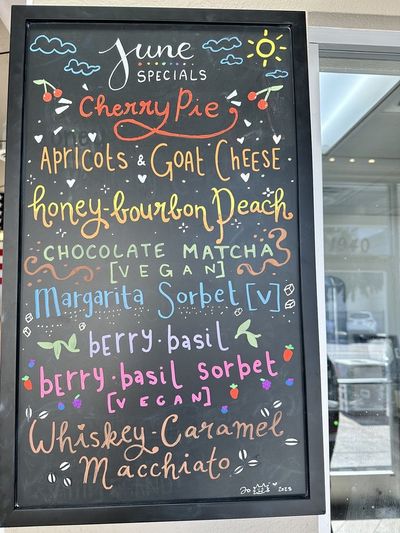 June
SPECIALS
Cherry Pie
Apricots & Goat Cheese
honey-bourbon Peach
CHOCOLATE MATCHA
[VEGAN]
Margarita Sorbet [V]
berry·basil
berry·basil sorbet
[VEGAN]
Whiskey·Caramel
Macchiato
Jo 2023